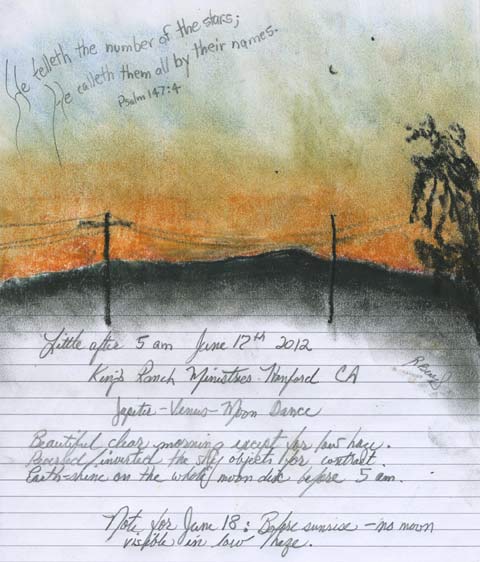 He telleth the number of the stars;
He calleth them all by their names.
Psalm 147:4
Little after 5 am June 17th 2012
King's Ranch Ministries - Hanford CA
Jupiter - Venus - Moon Dance
Beautiful clear morning except for low haze.
inverted the sky objects for contrast.
Earth=shine on the whole moon disk before 5 am.
Note for June 18: Before sunrise - no moon
visible in low haze.